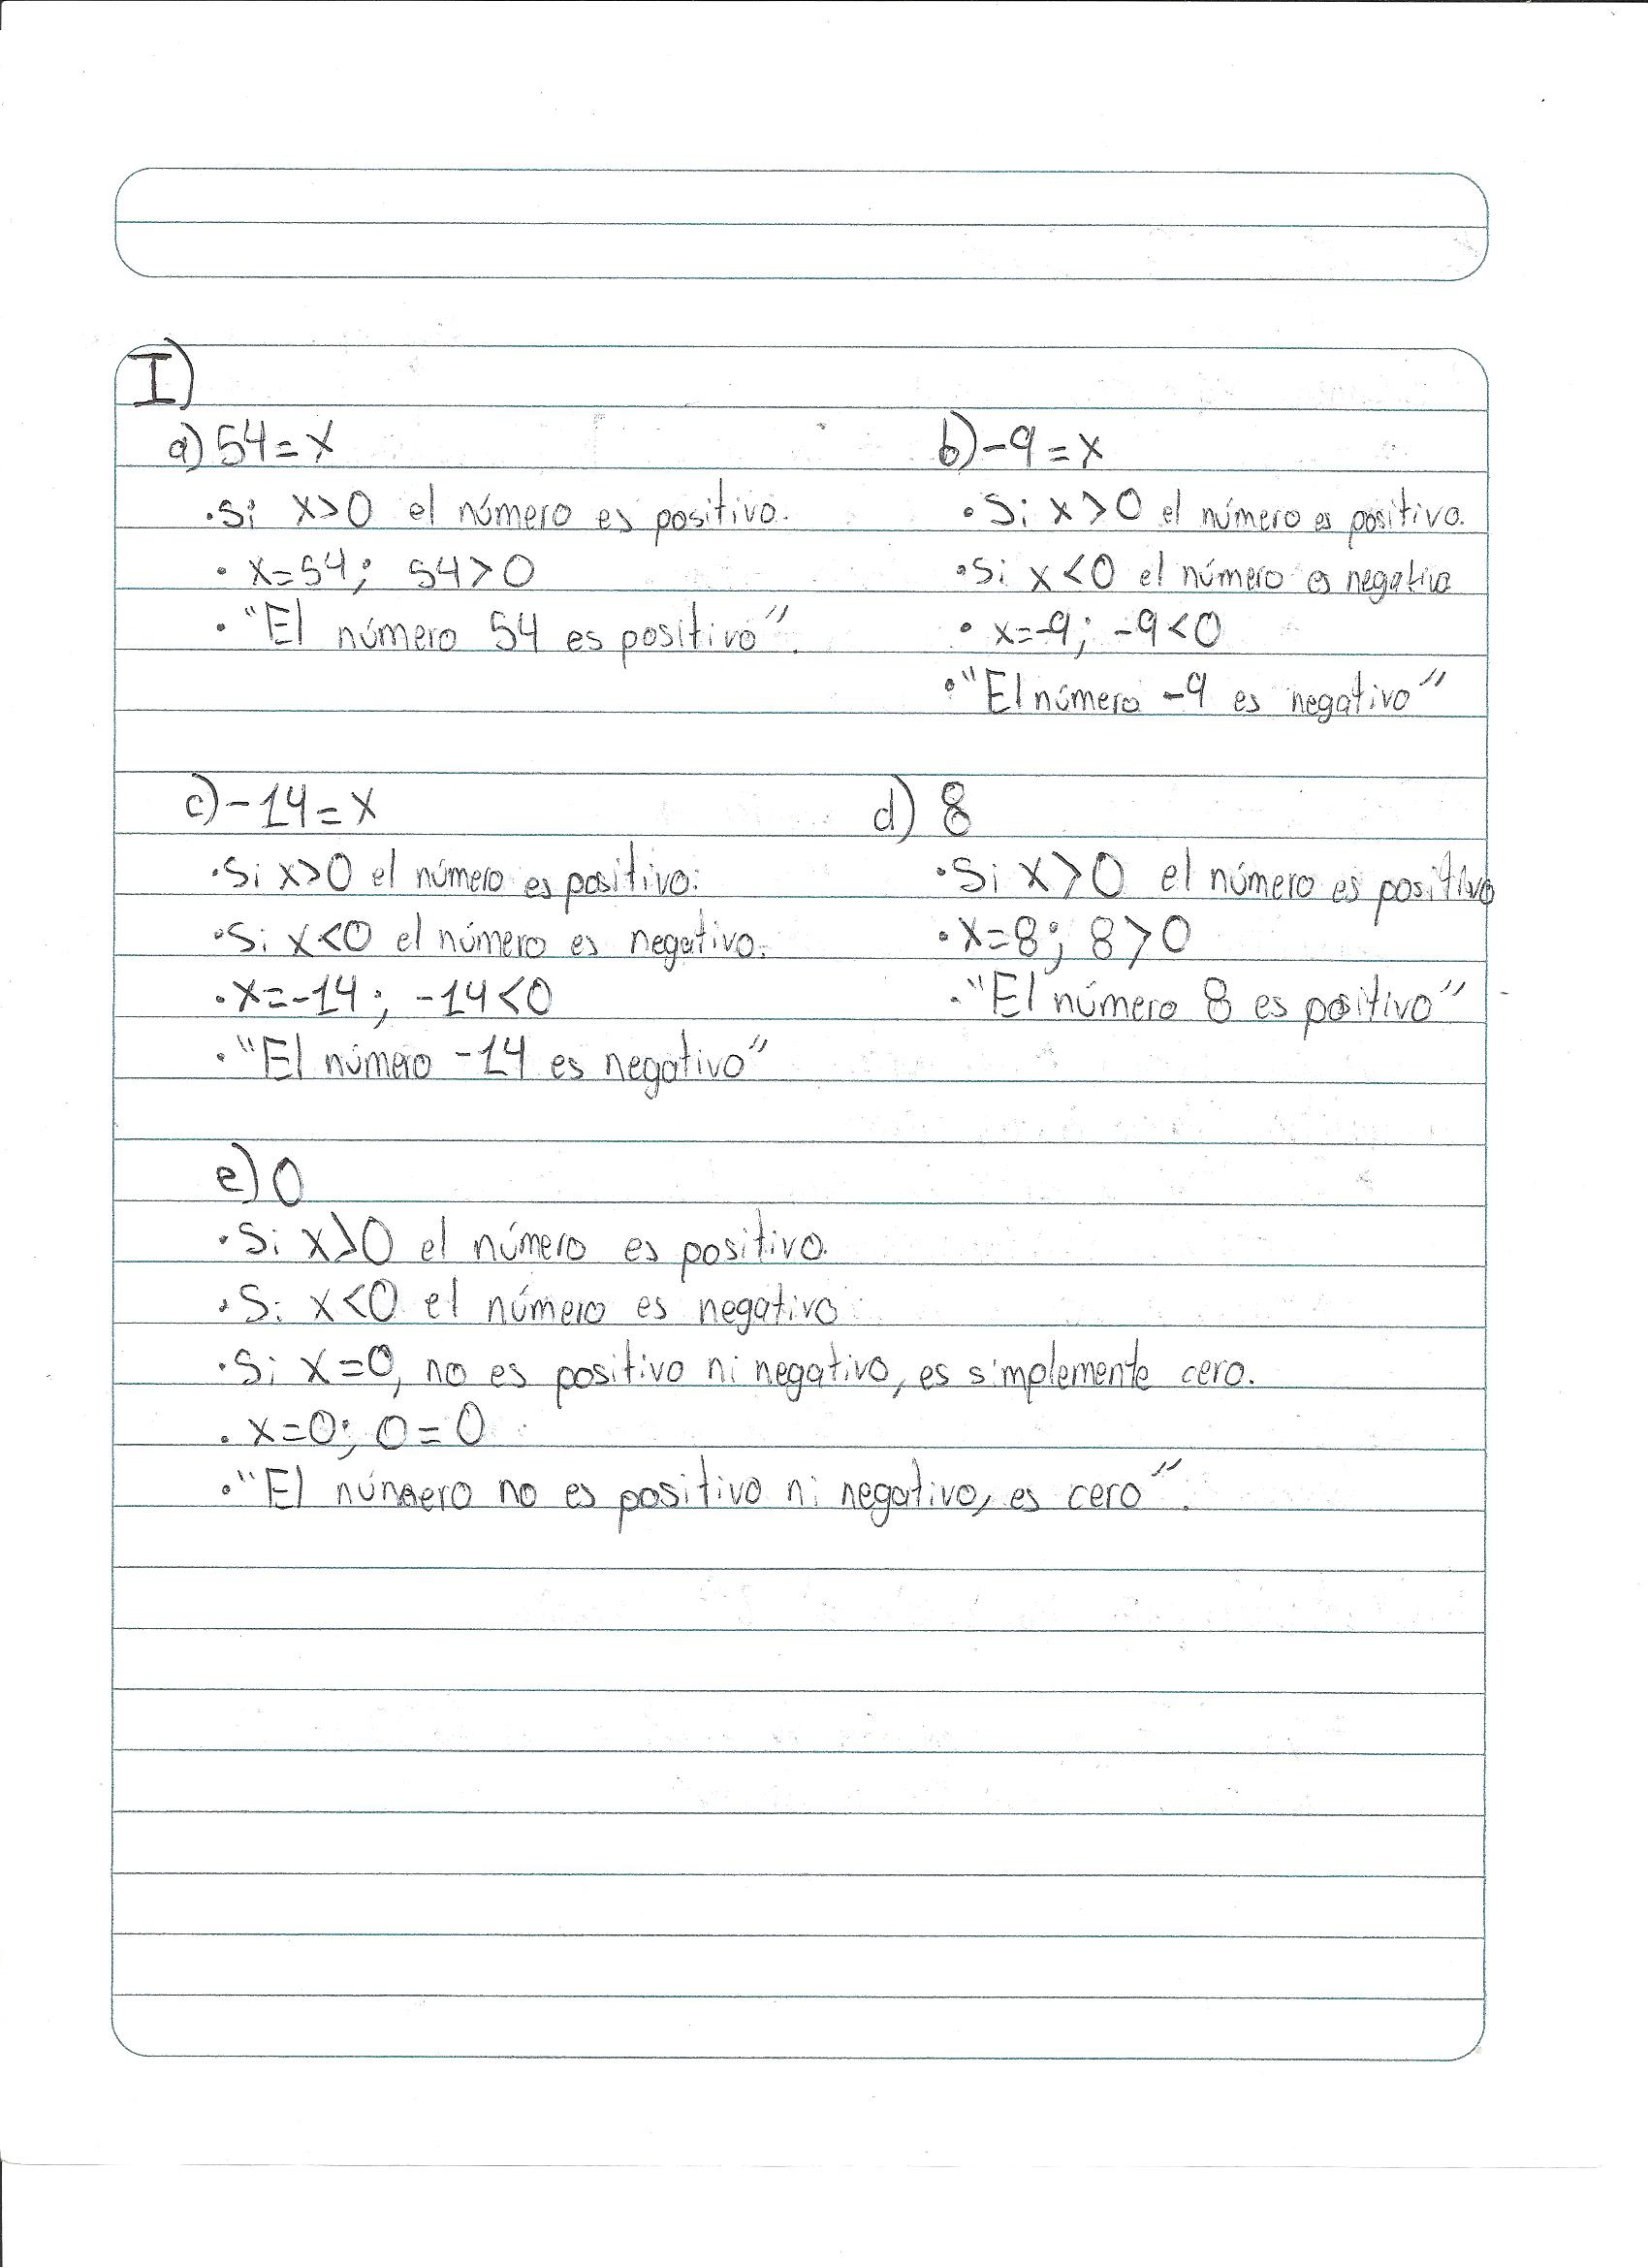 I)
a) 54 = x
• Si x>0 el número es positivo.
• x=54; 54>0
• "El número 54 es positivo".
b) -9 = x
• Si x>0 el número es positivo.
• Si x<0 el número es negativo
• x=-9; -9<0
• "El número -9 es negativo"
c) -14 = x
• Si x>0 el número es positivo.
• Si x<0 el número es negativo.
• x=-14; -14<0
• "El número -14 es negativo"
d) 8
• Si x>0 el número es positivo
• x=8; 8>0
• "El número 8 es positivo"
e) 0
• Si x>0 el número es positivo.
• Si x<0 el número es negativo
• Si x=0, no es positivo ni negativo, es simplemente cero.
• x=0; 0=0
• "El número no es positivo ni negativo, es cero".